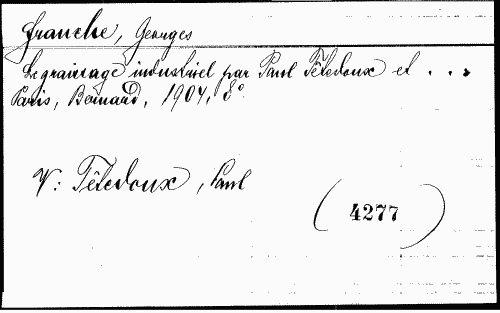 Franche, Georges
Le graissage industriel par Paul Têtedoux et . . .
Paris, Bernard, 1904, 8°.
V: Têtedoux, Paul
(4277)